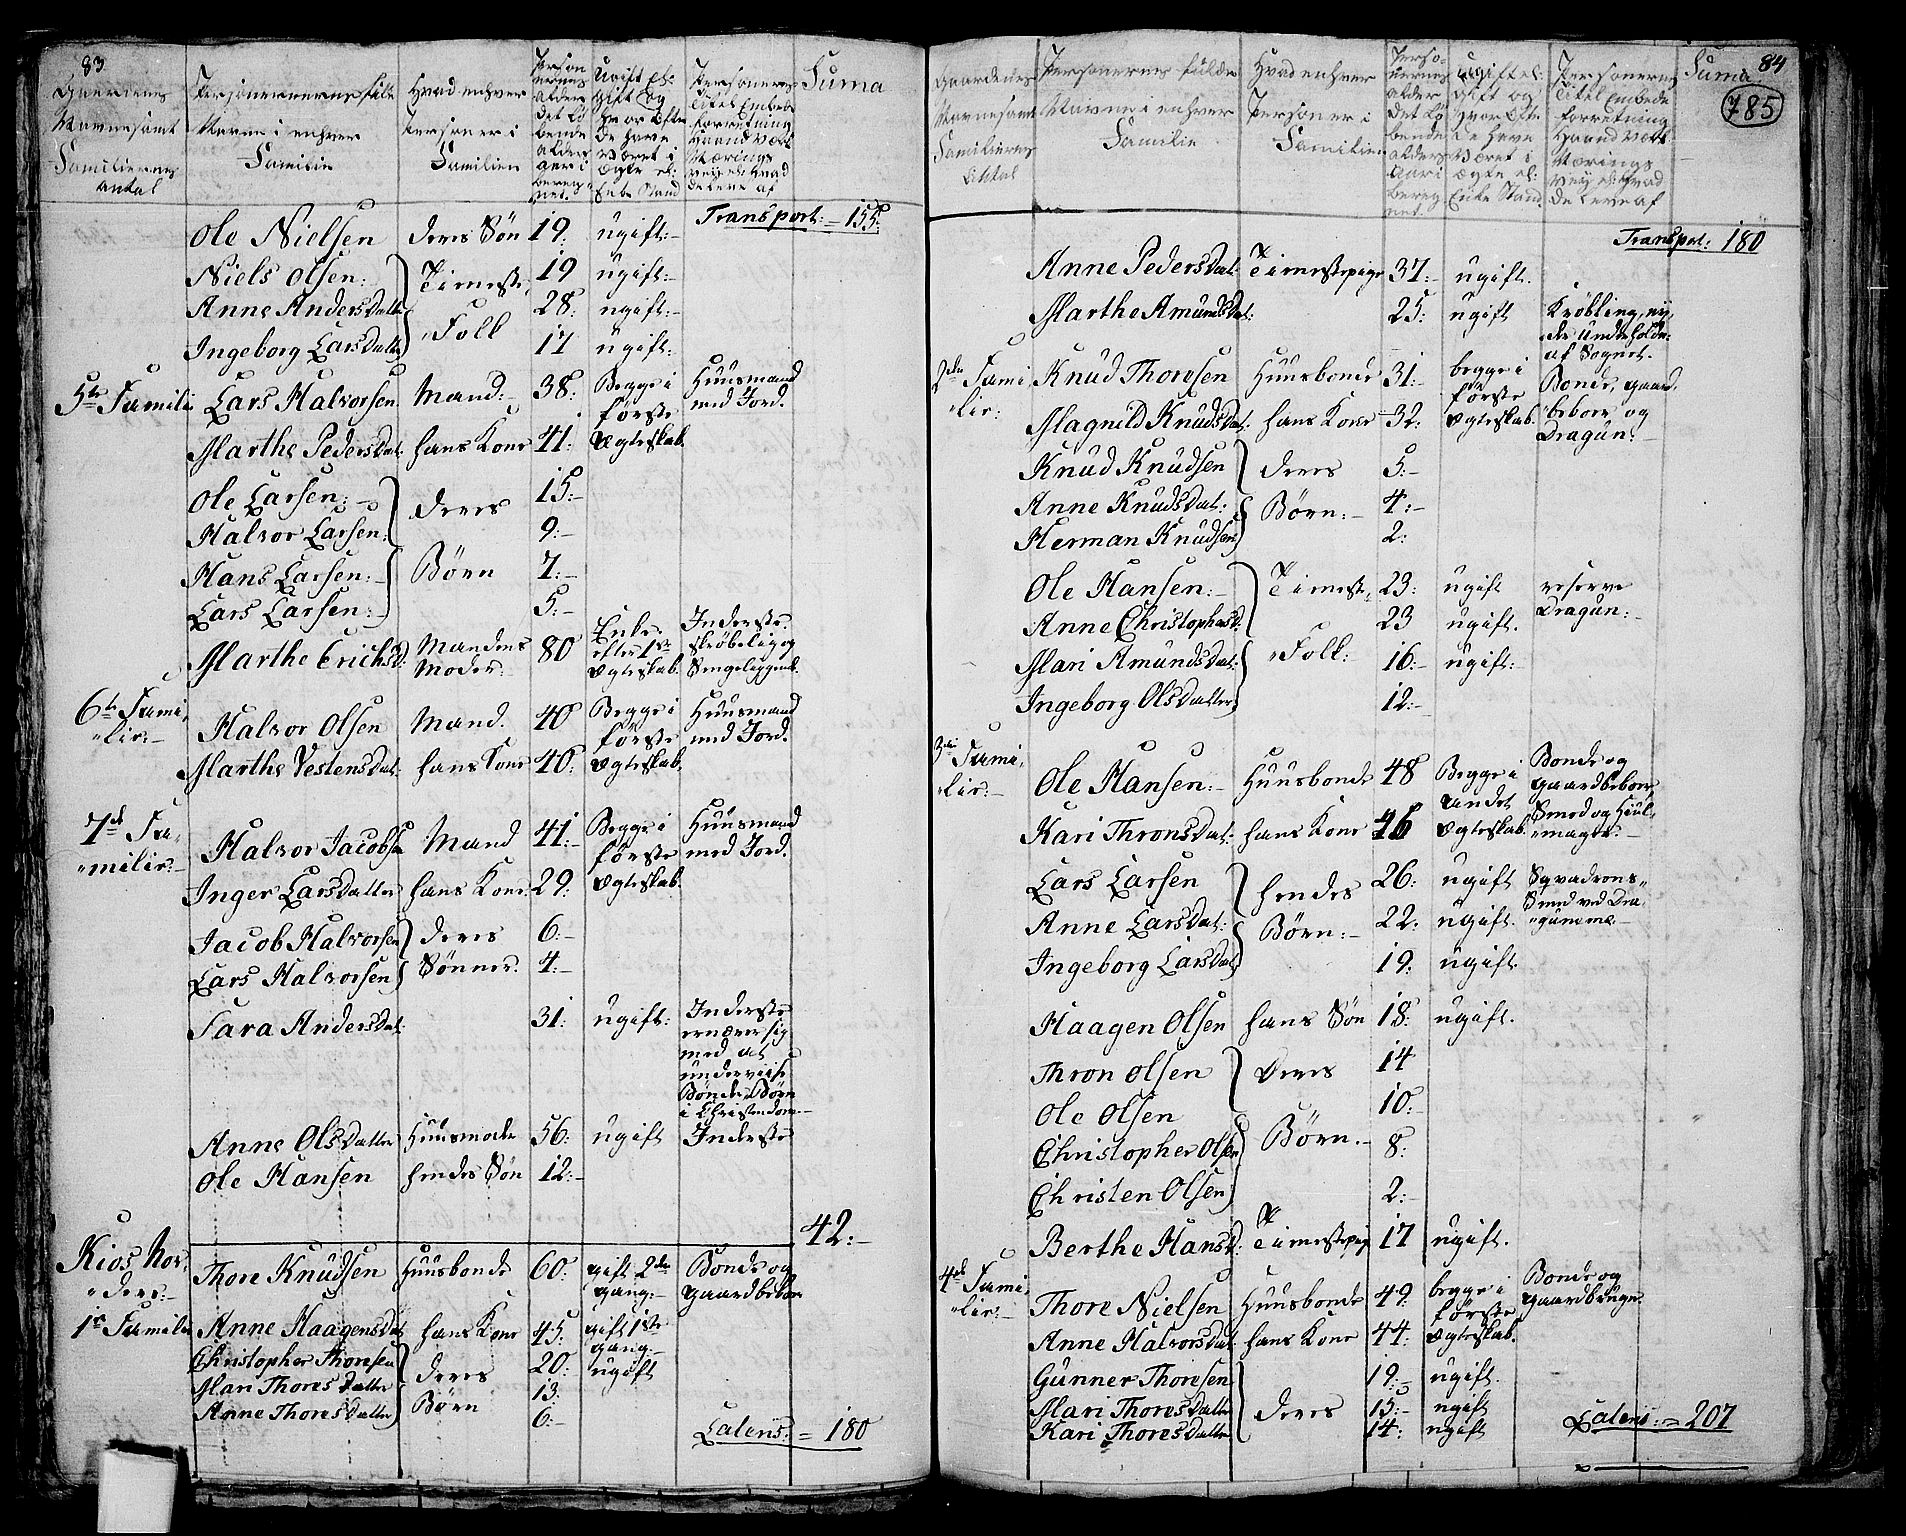 83
Gaardenes Navne samt Familiernes antal
Personernernes fulde Navne i enhver Familie
Hvad enhver Personer i Familien
Personernes alder det Løbende alders aar i beregnet.
Ugift el: Gift og hvor ofte de have været i Ægte el: Enke Stand
Personernes Titel Embede forretning Haand Værk Nærings vey el: hvad de leve af
Suma
Transport: = 155:
Ole Nielsen deres Søn 19. ugift:-
Niels Olsen: Tieneste 19 ugift:-
Anne Andersdatte 28: ugift:-
Ingeborg Larsdatte Folk 17 ugift:
5te Famili Lars Halvorsen Mand:- 38: Begge i første Ægteskab. Huusmand med Jord.
Marthe Pedersdat: hans Kone 41:
Ole Larsen:- deres 15:-
Halvor Larsen: 9:-
Hans Larsen:- Børn 7:-
Lars Larsen:- 5:-
Marthe Erichsd: Mandens Moder:- 80 Enke efter 1ste Ægteskab. Inderste. skrøbelig og Sengeliggend.
6te Fami,
"lie:- Halvor Olsen Mand. 40 Begge i første Ægteskab, Huusmand med Jord.
Marthe Vestensdat. hans Kone 40:
7de Fa"
"milie:- Halvor Jacobsen Mand 41:- Begge i første Ægteskab. Huusmand med Jord.
Inger Larsdatter hans Kone 29:
Jacob Halvorsen deres 6:-
Lars Halvorsen Sønner. 4:-
Sara Andersdat: 31: ugift: Inderste ernærer sig med at underviise Bønder Børn i Christendom-
Anne Olsdatter Huusmoder 56: ugift Inderste
Ole Hansen hendes Søn 12:-
42:-
Kios Nor:
"dere:-
1e Familie Thore Knudsen Huusbonde 60: gift 2den gang:- Bonde og gaardbeboer
Anne Haagensdat hans Kone 45: gift 1ste gang:-
Christopher Thoresen deres 20: ugift
Mari Thoresdatter Børn 13.
Anne Thoresdatter 6:-
Lateris: = 180
84
785
Gaardenes Navne samt Familiernes Antal
Personernes fulde Navne i enhver Familie
Hvad enhver Personer i Familien
Personernes alder det Løbende alders Aar i beregnet.
Ugift el: gift og hvor ofte de have Været i Ægte el: Enke Stand
Personernes Titel Embede forretning Haand Værk Nærings Vey el: hvad de leve af
Suma
Transport: 180
Anne Pedersdat: Tienestepige 37:- ugift.
Marthe Amundsdat: 25: ugift Krøbling, nyder underholdn: af Sognet.
2den Fami
"lie: Knud Thoresen Huusbonde 31:- begge i første Ægteskab. Bonde, gaardbeboer og Dragun:-
Magnild Knudsdat: hans Kone 32:
Knud Knudsen deres 5:-
Anne Knudsdat: Børn:- 4:-
Herman Knudsen 2:
Ole Hansen:- Tieneste 23: ugift reserve Dragun:-
Anne Christophersd: 23 ugift.
Mari Amundsdat: "Folk: 16:- ugift:-
Ingeborg Olsdatter 12:-
3die Fami,
"lie:- Ole Hansen:- Huusbonde 48 Begge i andet Ægteskab Bonde og gaardbeboer, Smed og Hiulmager.-
Kari Thronsdat: hans Kone 46
Lars Larsen hendes 26: ugift Sqvadrons-Smed ved Dragunerne-
Anne Larsdat: Børn:- 22: ugift.
Ingeborg Larsdat 19: ugift.
Haagen Olsen hans Søn 18: ugift.
Thron Olsen Deres 14
Ole Olsen 10:-
Christopher Olsen Børn.- 8:
Christen Olsen 2:-
Berthe Hansd: Tienestepige 17 ugift.
4de Fami,
"lie:- Thore Nielsen Huusbonde 49. begge i første Ægteskab. Bonde og gaardbruger
Anne Halvorsdat hans Kone 44:
Gunner Thoresen 19:- ugift.
Mari Thoresdatter deres 15:- ugift
Kari Thoresdatter 14: ugift
Lateris: = 207